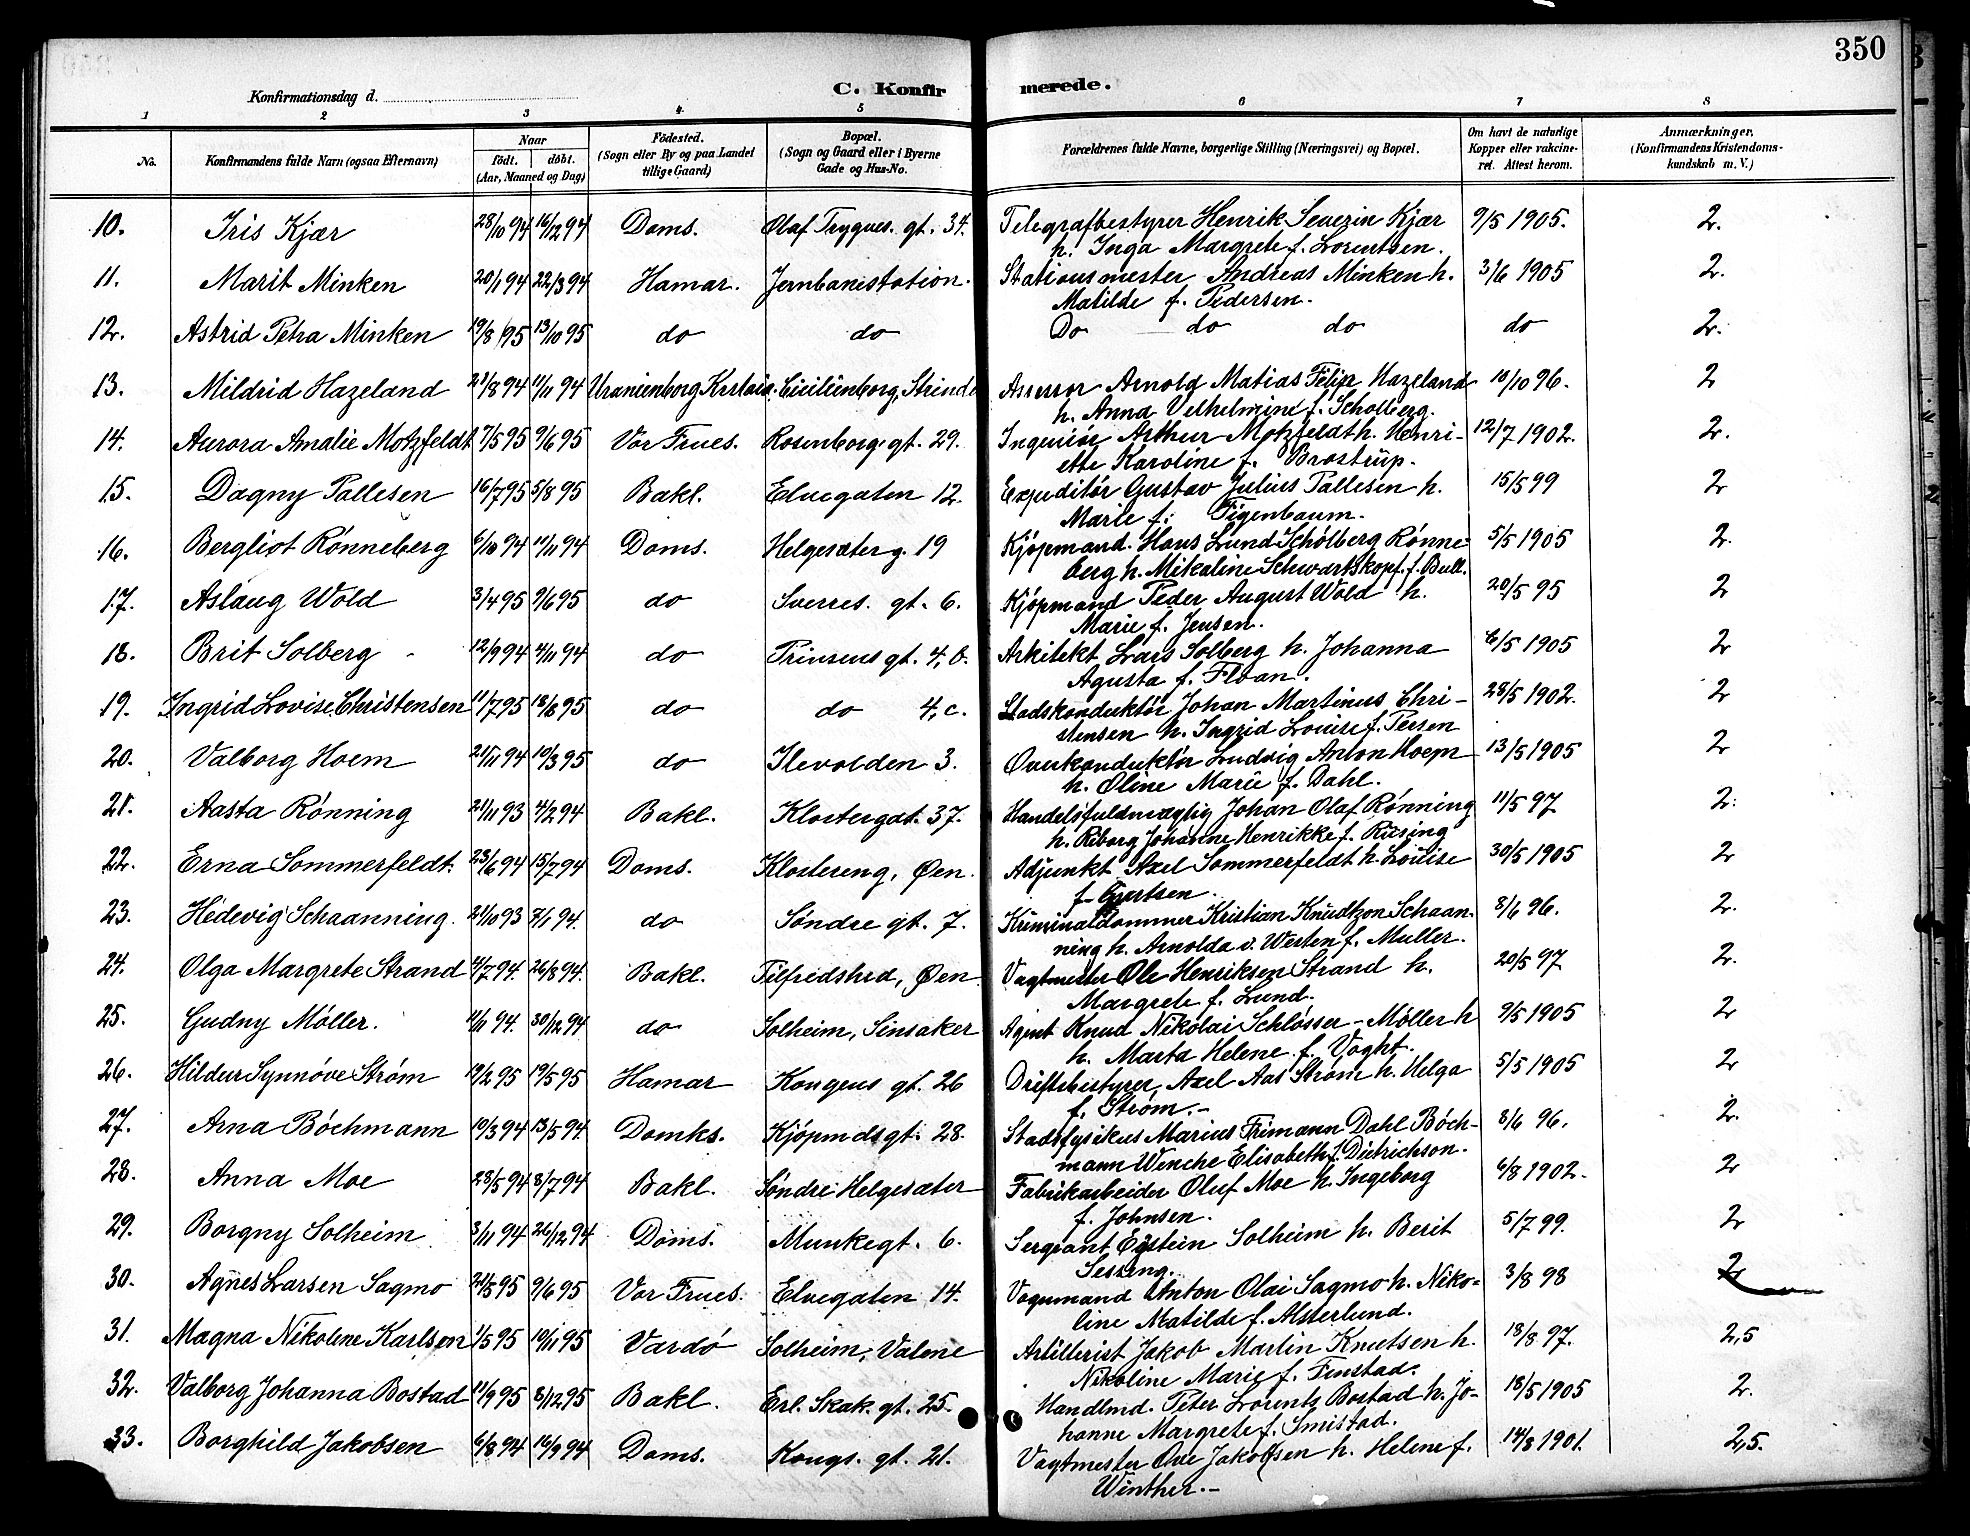 350
Konfirmationsdag d.
C. Konfir merede.
1 2 3 4. 5 6 7 8
No. Konfirmandens fulde Navn (ogsaa Efternavn) Naar födt. döbt. (Aar, Maaned og Dag) Födested. (Sogn eller By og paa Landet tillige Gaard) Bopæl. (Sogn og Gaard eller i Byerne Gade og Hus-No. Forældrenes fulde Navne, borgerlige Stilling (Næringsvei) og Bopæl. Om havt de naturlige Kopper eller vakcineret. Attest herom. Anmærkninger. (Konfirmandens Kristendomskundskab m. V.)
10. Iris Kjær 28/10 94 16/12 94 Doms. Olaf Trygves. gt. 34. Telegrafbestyrer Henrik Severin Kjær 9/5 1905. 2.
h. Inga Margrete f. Lorentsen.
11. Marit Minken 20/1 94 22/3 94 Hamar. Jernbanestation. Stationsmester Andreas Minken h. 3/6 1905 2.
Matilde f. Pedersen.
12. Astrid Petra Minken 19/8 95 13/10 95 do do Do do do do 2.
13. Mildrid Hazeland 21/8 94 11/11 94 Uranienborg Krstaia. Ciciliënborg, Strinda Assessor Arnold Matias Filip Hazeland 10/10 96. 2
h. Anna Velhelmine f. Scholberg.
14. Aurora Amalie Motzfeldt 7/5 95 9/6 95 Vor Frues. Rosenborg gt. 29. Ingeniör Arthur Motzfeldt h. Henri- 12/7 1902. 2.
ette Karoline f. Brostrup.
15. Dagny Pallesen 16/7 95 5/8 95 Bakl. Elvegaten 12. Expeditör Gustav Julius Pallesen h. 15/5 99 2
Marie f. Figenbaum.
16. Bergliot Rönneberg 6/10 94 11/11 94 Doms. Helgesæter g. 19 Kjöpmand. Hans Lund Schölberg Rønne- 5/5 1905 2.
berg h. Mikaline Schwartskopf. f. Bull.
17. Aslaug Wold 3/4 95 9/6 95 do Sverres. gt. 6. Kjöpmand Peder August Wold h. 20/5 95 2
Marie f. Jensen.
18. Brit Solberg 12/9 94 4/11 94 do Prinsens gt. 4, b. Arkitekt Lars Solberg h. Johanna 6/5 1905 2
Agusta f. Floan.
19. Ingrid Lovise Christensen 11/7 95 18/8 95 do do 4, c. Stadskonduktör Johan Martinus Chri- 28/5 1902. 2
stensen h. Ingrid Louise f. Persen
20. Valborg Hoem 21/11 94 10/3 95 do Ilevolden 3. Overkonduktör Ludvig Anton Hoem 13/5 1905 2
h. Oline Marie f. Dahl.
21. Aasta Rönning 21/11 93 4/2 94 Bakl. Klostergat. 37. Handelsfuldmægtig Johan Olaf Rønning 11/5 97 2.
h. Riborg Johanne Henrikke f. Riising
22. Erna Sommerfeldt. 23/6 94 15/7 94 Doms. Klostereng, Øen. Adjunkt Axel Sommerfeldt h. Louise 30/5 1905 2
23. Hedevig Schaanning. 21/10 93 7/1 94. do Söndre gt. 7. Kriminaldommer Kristian Knudtzon Schaan- 8/6 96. 2.
ning h. Arnolda v. Westen f. Muller.
24. Olga Margrete Strand 4/7 94. 26/8 94. Bakl. Tilfredshed, Øen Vagtmester Ole Henriksen Strand h. 20/5 97 2.
Margrete f. Lund.
25. Gudny Möller. 11/11 94. 30/12 94 do Solheim, Sinsaker Agent Knud Nikolai Schlösser-Möller h 9/5 1905 2
h. Marta Helene f. Voght.
26. Hildur Synnöve Ström 19/2 95 19/5 95 Hamar Kongens gt. 26 Driftsbestyrer Axel Aas Ström h. Helga 5/5 1905 2
f. Ström.-
27. Arna Böchmann 10/3 94 13/5 94. Domks. Kjöpmdsgt. 28. Stadsfysikus Marius Frimann Dahl Böch- 8/6 96. 2.
mann Wenche Elisabeth f. Dietrichson.
28. Anna Moe 28/5 94 8/7 94 Bakl. Söndre Helgesæter Fabrikarbeider Oluf Moe h. Ingeborg 6/8 1902. 2
f. Johnsen.
29. Borgny Solheim 3/11 94 26/12 94 Doms. Munkegt. 6. Sergeant Eystein Solheim h. Berit 5/7 99. 2
Sesseng.
30. Agnes Larsen Sagmo 21/5 95 9/6 95 Vor Frues. Elvegaten 14. Vognmand Anton Olai Sagmo h. Niko- 3/8 98 2
line Matilde f. Alsterlund.
31. Magna Nikolene Karlsen 1/5 95 10/11 95 Vardö Solheim, Valene Artillerist Jakob Martin Knutsen h. 18/8 97. 2,5
Nikoline Marie f. Finstad.
32. Valborg Johanna Bostad 11/9 95 8/12 95 Bakl. Erl. Skak. gt. 25. Handlmd. Peter Lorents Bostad h. Jo- 18/5 1905 2.
hanne Margrete f. Smistad.
33. Borghild Jakobsen 6/8 94 16/9 94 Doms. Kongs. gt. 21. Vagtmester Ove Jakobsen h. Helene f. 14/8 1901. 2,5.
Winther.-